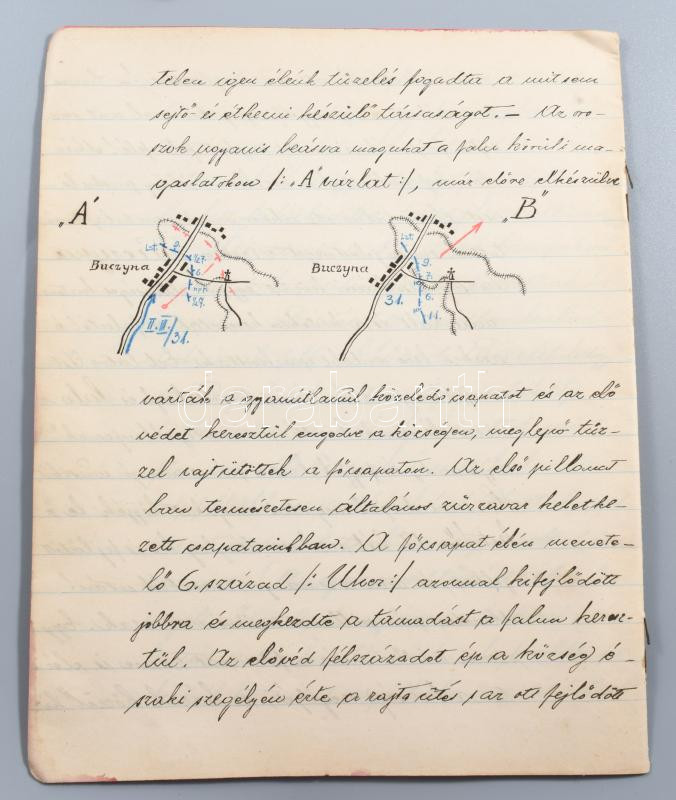 telen igen élénk tüzelés fogadta a mit sem
sejtő és étkezni készülő társaságot. – Az oro-
szok ugyanis beásva magukat a falu körüli ma-
gaslatokon /: „A” vázlat :/, már előre elkészülve
„A” „B”
Lst. 9. Lst. 9.
12.
Buczyna 6. Buczyna 7.
31. 6.
12.9. 11.
II. II./31.
darabanth
várták a gyanútlanul közeledő csapatot és az elő
védet keresztül engedve a községen, meglepő tűz-
zel rajtütöttek a főcsapaton. Az első pillanat
ban természetesen általános zűrzavar keletke-
zett csapatainkban. A főcsapat élén menete-
lő 6. század /: Uher :/ azonnal kifejlődött
jobbra és megkezdte a támadást a falun keresz-
tül. Az elővéd félszázadot ép a község é-
szaki szegélyén érte a rajta ütés s az ott fejlődött